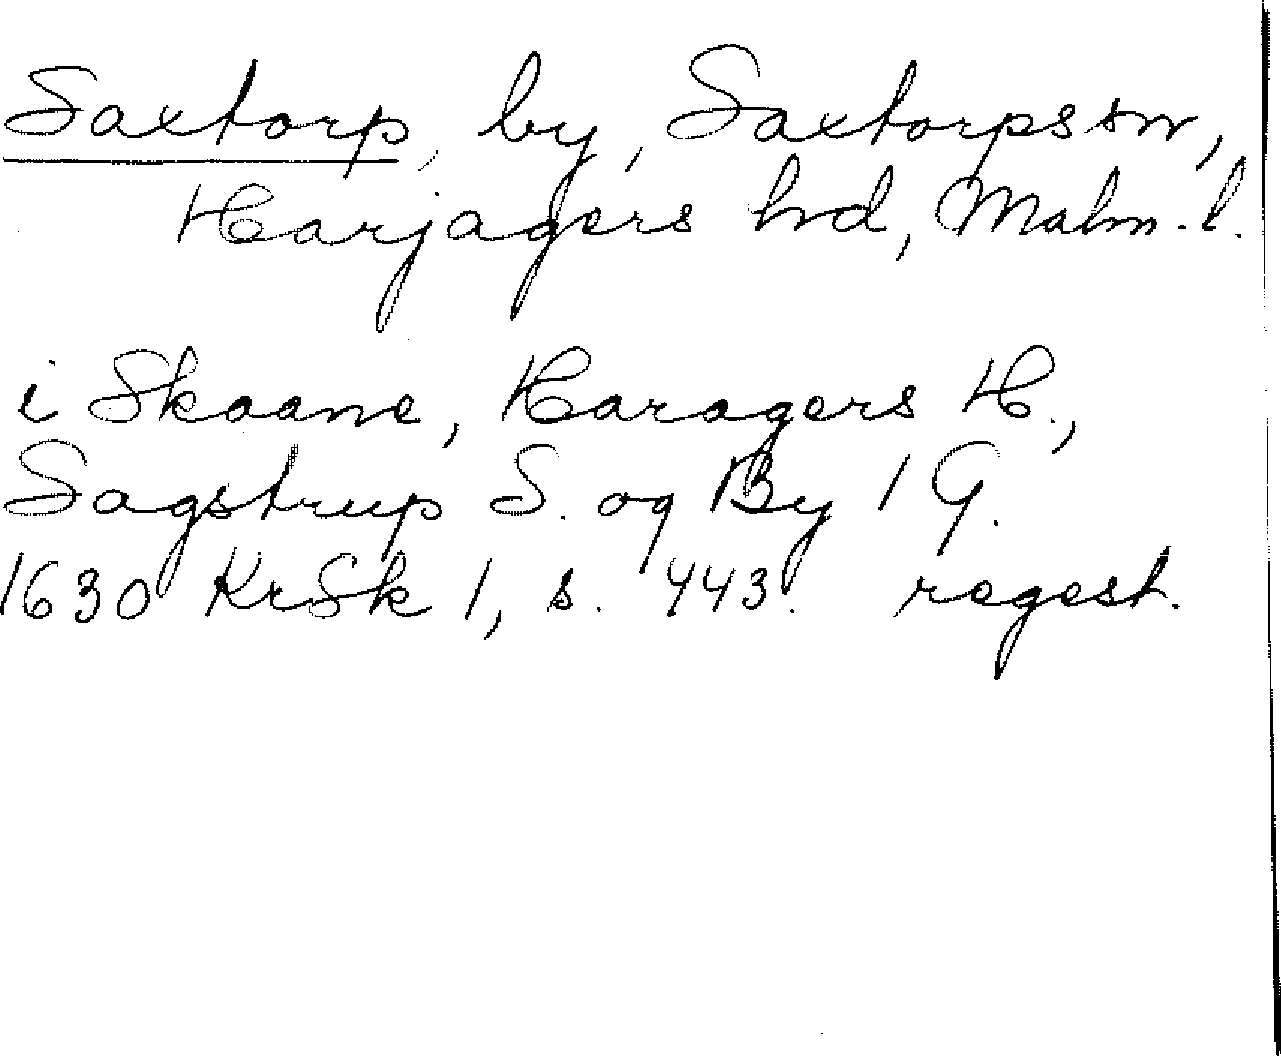 Saxtorp, by, Saxtorps sn,
Harjagers hd, Malm. l.
i Skaane, Haragers H.,
Sagstrup S. og By 1 G.
1630 KrSk 1, s. 443. regest.